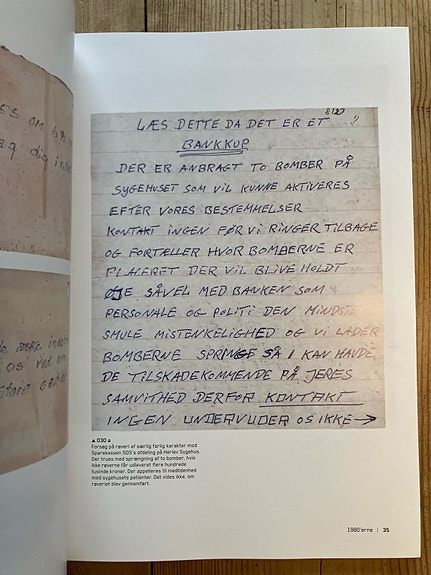 8/20
LÆS DETTE DA DET ER ET !!
BANKKUP
DER ER ANBRAGT TO BOMBER PÅ
SYGEHUSET SOM VIL KUNNE AKTIVERES
EFTER VORES BESTEMMELSER
KONTAKT INGEN FØR VI RINGER TILBAGE
OG FORTÆLLER HVOR BOMBERNE ER
PLACERET DER VIL BLIVE HOLDT
ØJE SÅVEL MED BANKEN SOM
PERSONALE OG POLITI DEN MINDSTE
SMULE MISTENKELIGHED OG VI LADER
BOMBERNE SPRINGE SÅ I KAN HAVDE
DE TILSKADEKOMMENDE PÅ JERES
SAMVITHED DERFOR KONTAKT
INGEN UNDERVUDER OS IKKE →
▲ 030 a
Forsøg på røveri af særlig farlig karakter mod
Sparekassen SDS's afdeling på Herlev Sygehus.
Der trues med sprængning af to bomber, hvis
ikke røverne får udleveret flere hundrede
tusinde kroner. Der appelleres til medlidenhed
med sygehusets patienter. Det vides ikke, om
røveriet blev gennemført.
1980'erne | 35